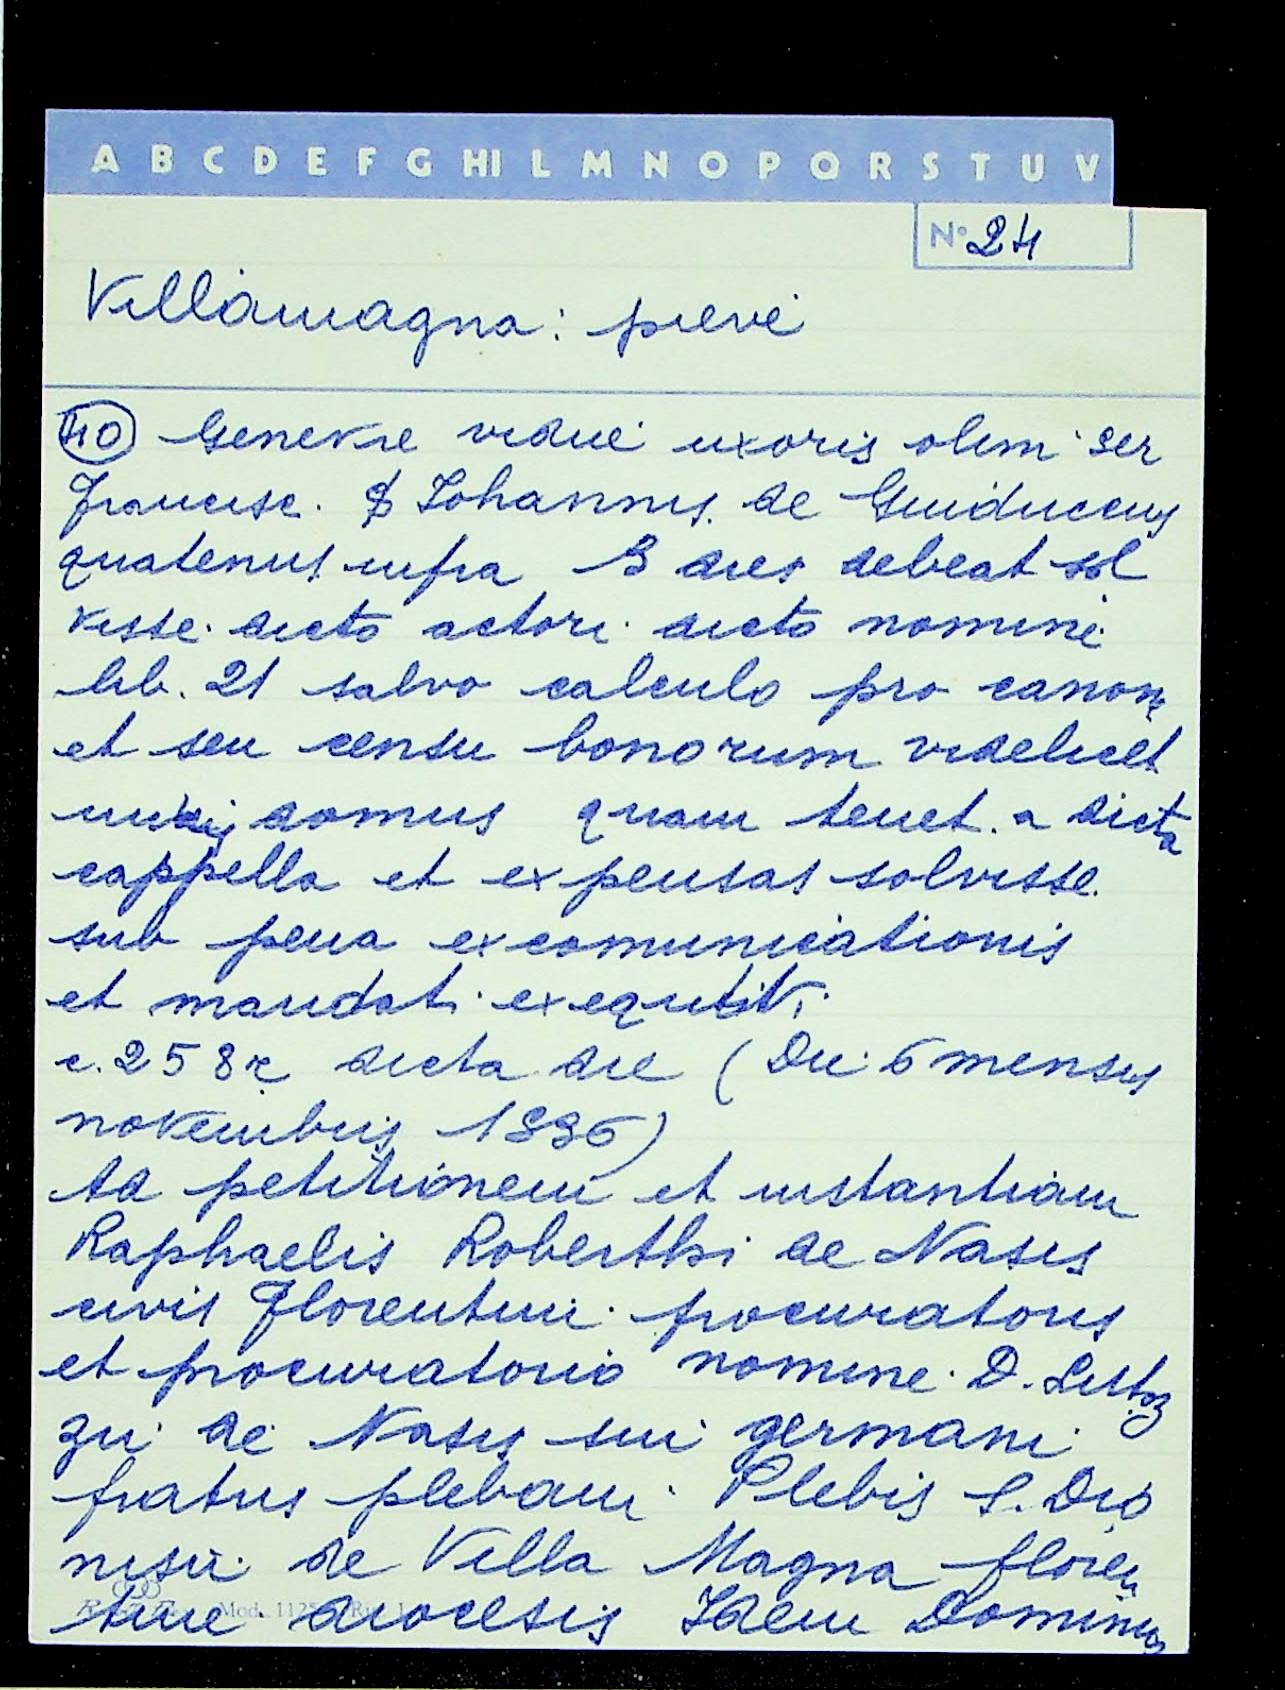 A B C D E F G HI L M N O P Q R S T U V
N° 24
Villamagna: pieve
40 Genevre vidue uxoris olim ser
Francisc. Johannis. de Guiduccijs
quatenus infra 3 dies debeat sol
visse dicto actori dicto nomine
lib. 21 salvo calculo pro canone
et seu censu bonorum videlicet
domus quam tenet a dicta
cappella et expensas solvisse
sub pena excomunicationis
et mandati exequtivi
c. 258r dicta die (Die 6 mensis
novembris 1996)
Ad petitionem et instantiam
Raphaelis Roberthi de Nasis
civis Florentini procuratoris
et procuratorio nomine D.
de Nasis sui germani
fratris plebani Plebis S. Dio
nisii de Villa Magna floren
tine diocesis Idem Dominus
Mod.